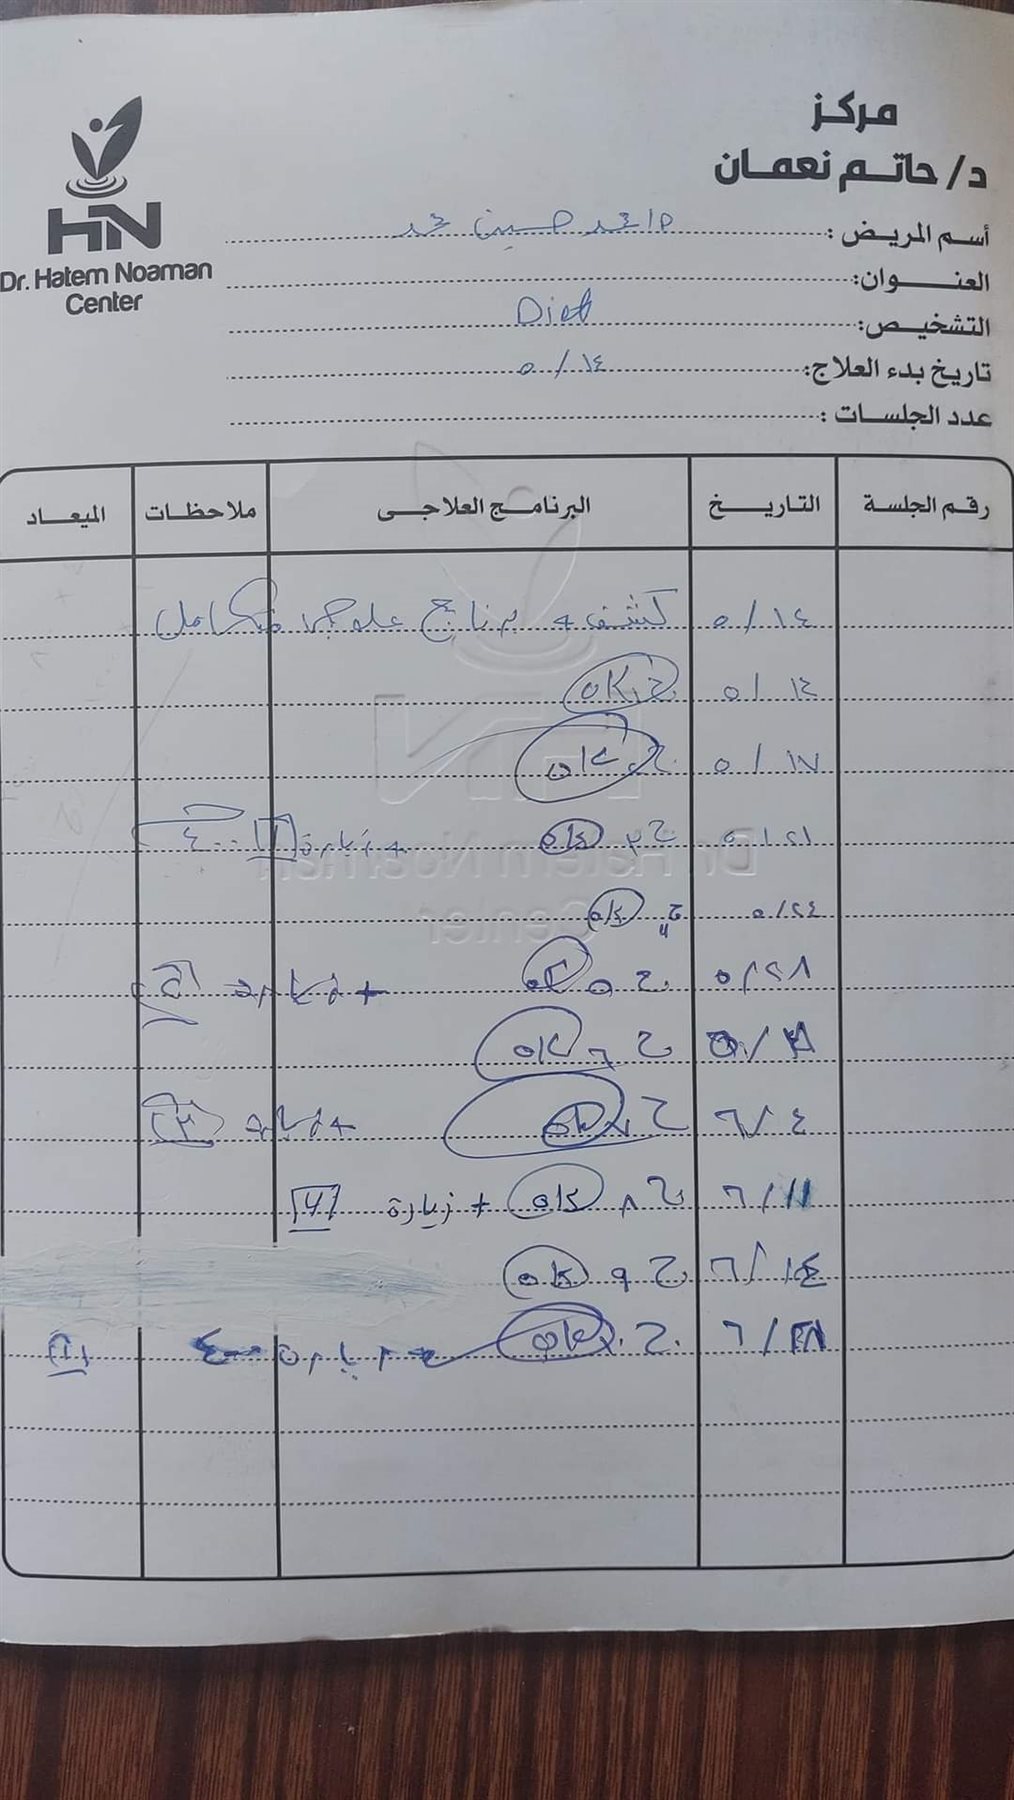 مركز
د/ حاتم نعمان
HN
Dr. Hatem Noaman
Center
أسم المريض : احمد حسين محمد
العنوان:
التشخيص: Diet
تاريخ بدء العلاج: ١٤ / ٥
عدد الجلسات :
رقم الجلسة التاريخ البرنامج العلاجى ملاحظات الميعاد
١٤ / ٥ كشف + برنامج علاجى متكامل
١٤ / ٥ ج١ ok
١٧ / ٥ ج٢ ok
٢١ / ٥ ج٣ ok + زيارة ١ ٤٠٠
٢٤ / ٥ ج٤ ok
٢٨ / ٥ ج ٥ ok + زيارة ٢
ج ٦ ok
٤ / ٦ ج ٧ ok + زيارة ٣
١١ / ٦ ج ٨ ok + زيارة ٤
١٤ / ٦ ج ٩ ok
/ ٦ ج ١٠ ok + زيارة ٤٠٠ ١